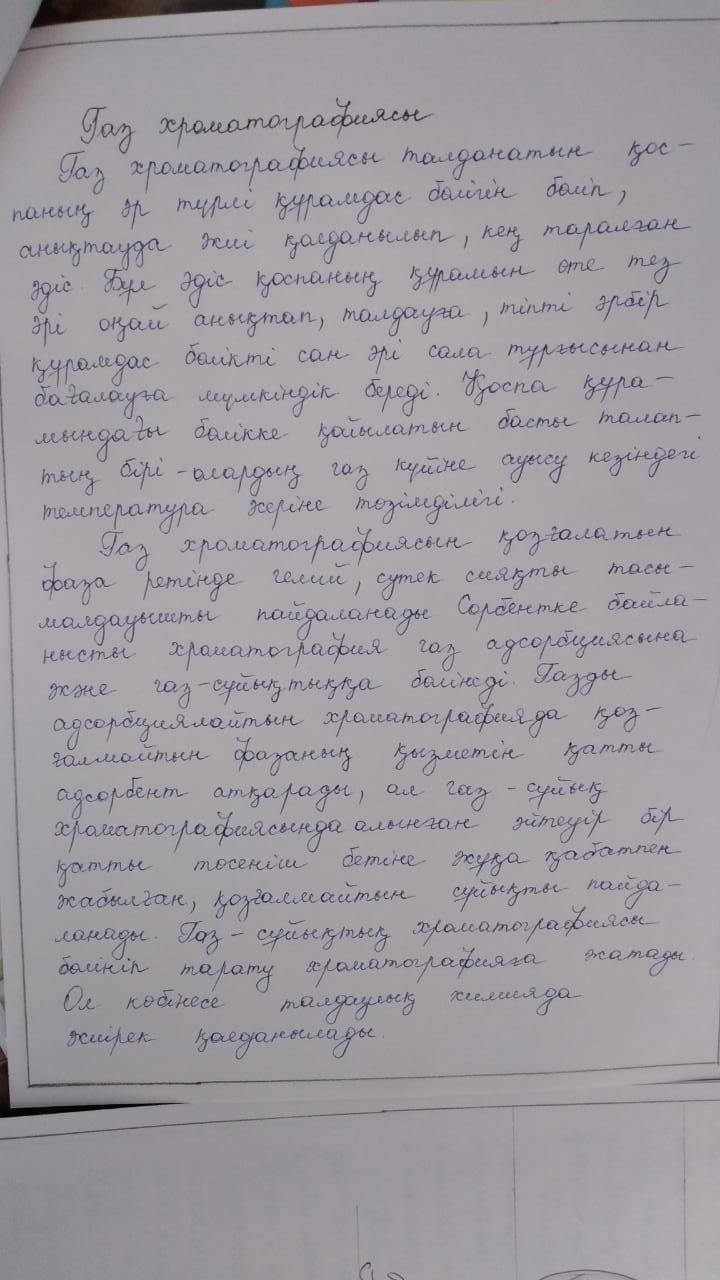 Газ хроматографиясы
Газ хроматографиясы талданатын қос-
паның әр түрлі құрамдас бөлігін бөліп,
анықтауда жиі қолданылып, кең таралған
әдіс. Бұл әдіс қоспаның құрамын өте тез
әрі оңай анықтап, талдауға, тіпті әрбір
құрамдас бөлікті сан әрі сапа тұрғысынан
бағалауға мүмкіндік береді. Қоспа құра-
мындағы бөлікке қойылатын басты талап-
тың бірі - олардың газ күйіне ауысу кезіндегі
температура әсеріне төзімділігі.
Газ хроматографиясын қозғалатын
фаза ретінде гелий, сутек сияқты тасы-
малдауышты пайдаланады. Сорбентке байла-
нысты хроматография газ адсорбциясына
және газ-сұйықтыққа бөлінеді. Газды
адсорбциялайтын хроматографияда қоз-
ғалмайтын фазаның қызметін қатты
адсорбент атқарады, ал газ - сұйық
хроматографиясында алынған әйтеуір бір
қатты төсеніш бетіне жұқа қабатпен
жабылған, қозғалмайтын сұйықты пайда-
ланады. Газ - сұйықтық хроматографиясы
бөлініп тарату хроматографияға жатады.
Ол көбінесе талдаулық химияда
жиірек қолданылады.